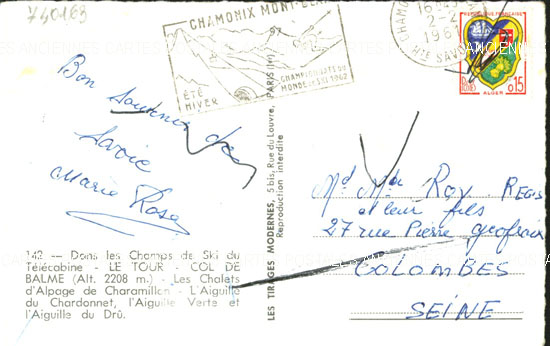 740163
CHAMONIX MONT-BLANC
ÉTÉ
HIVER
CHAMPIONNATS DU
MONDE DE SKI 1962
CHAMONIX
16H
2-2
196
HTE SAVOIE
REPUBLIQUE FRANÇAISE
POSTES
0,15
ALGER
Bon Souvenir de
Savoie
Marie Rose
142 — Dans les Champs de Ski du
Télécabine - LE TOUR - COL DE
BALME (Alt. 2208 m.) - Les Chalets
d'Alpage de Charamillon - L'Aiguille
du Chardonnet, l'Aiguille Verte et
l'Aiguille du Drû.
LES TIRAGES MODERNES, 5 bis, Rue du Louvre, PARIS (1er)
Reproduction interdite
Md Mr Roy REGIS
et leur fils
27 rue Pierre Geofroix
COLOMBES
SEINE